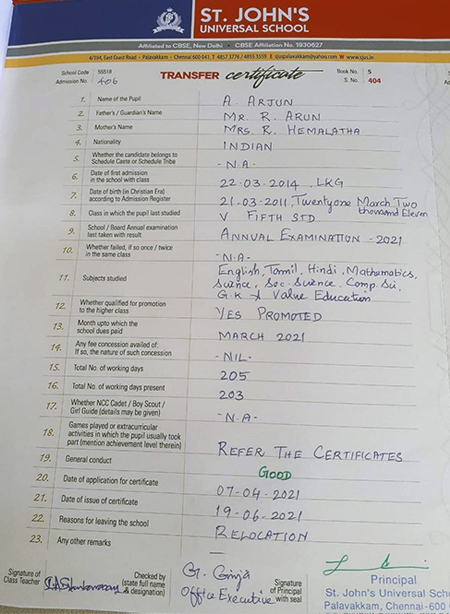 ST. JOHN'S
UNIVERSAL SCHOOL
Affiliated to CBSE, New Delhi • CBSE Affiliation No. 1930627
4/194, East Coast Road - Palavakkam - Chennai 600 041 T 4857 3776 / 4855 3559 E sjuspalavakkam@yahoo.com W www.sjus.in
School Code 55518
Book No. 5
TRANSFER certificate
Admission No. 406
S. No. 404
1. Name of the Pupil A. ARJUN
2. Father's / Guardian's Name MR. R. ARUN
3. Mother's Name MRS. R. HEMALATHA
4. Nationality INDIAN
5. Whether the candidate belongs to
Schedule Caste or Schedule Tribe -N.A-
6. Date of first admission
in the school with class 22.03.2014. LKG
7. Date of birth (in Christian Era)
according to Admission Register 21.03.2011, Twentyone March Two
thousand Eleven
8. Class in which the pupil last studied V FIFTH STD
9. School / Board Annual examination
last taken with result ANNUAL EXAMINATION - 2021
10. Whether failed, if so once / twice
in the same class -N.A-
11. Subjects studied English, Tamil, Hindi, Mathematics,
Science, Soc. Science, Comp. Sci,
G.K & Value Education
12. Whether qualified for promotion
to the higher class YES PROMOTED
13. Month upto which the
school dues paid MARCH 2021
14. Any fee concession availed of:
If so, the nature of such concession -NIL-
15. Total No. of working days 205
16. Total No. of working days present 203
17. Whether NCC Cadet / Boy Scout /
Girl Guide (details may be given) -N.A-
18. Games played or extracurricular
activities in which the pupil usually took
part (mention achievement level therein) REFER THE CERTIFICATES
19. General conduct GOOD
20. Date of application for certificate 07-04-2021
21. Date of issue of certificate 19-06-2021
22. Reasons for leaving the school RELOCATION
23. Any other remarks —
Signature of
Class Teacher
Checked by
(state full name
& designation)
G. Girija
Office Executive
Signature
of Principal
with seal
Principal
St. John's Universal Scho
Palavakkam, Chennai-600